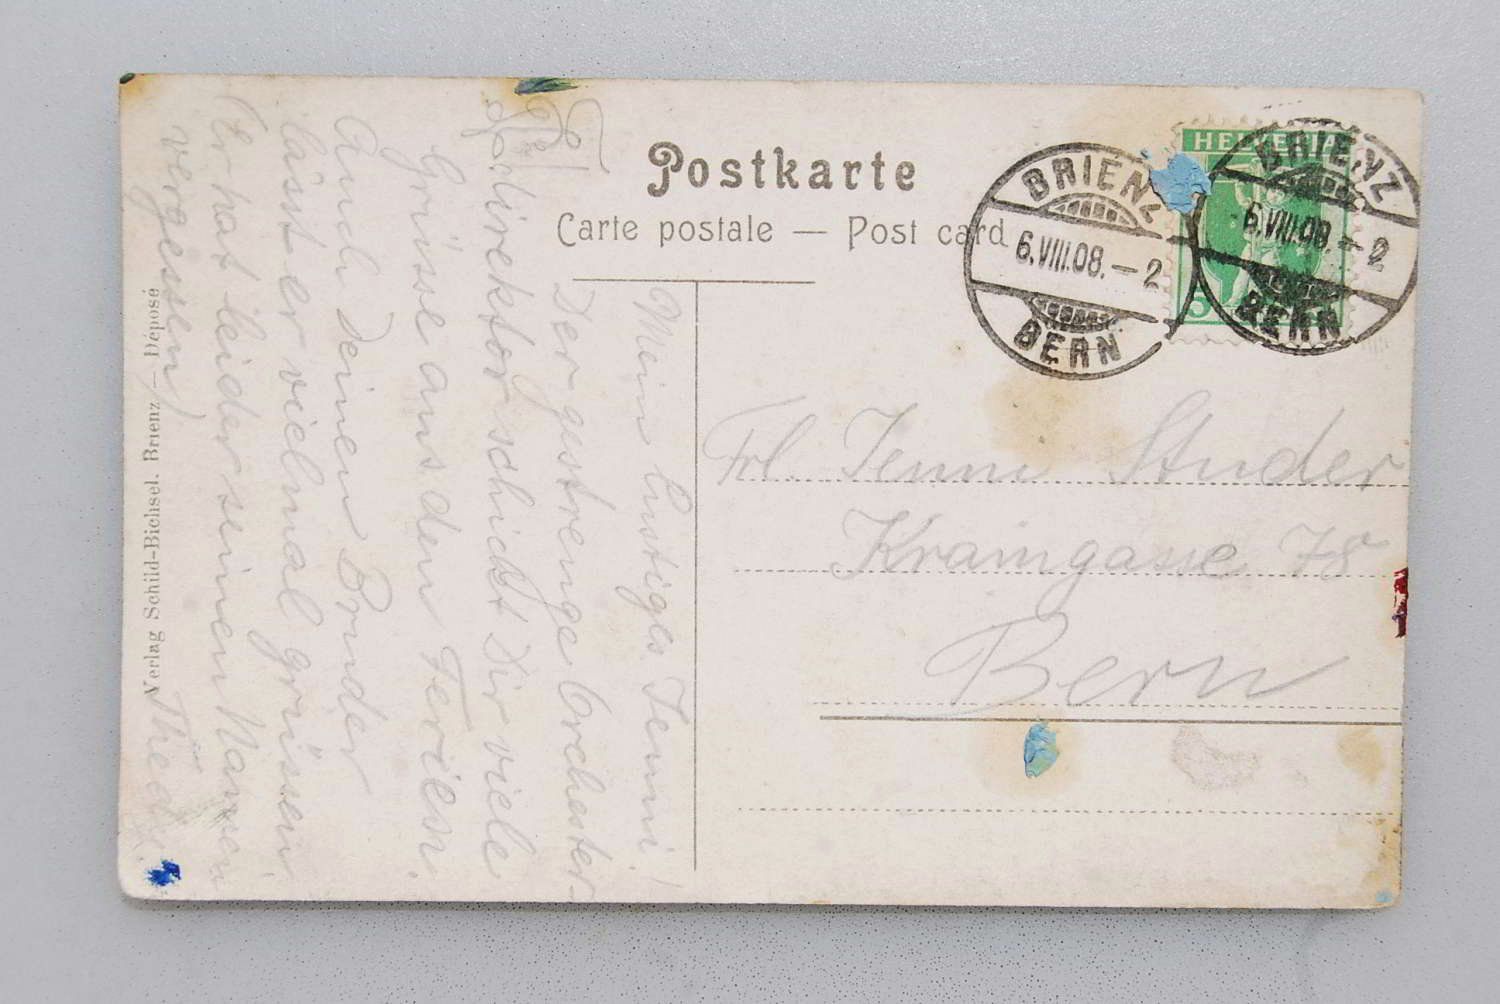 Postkarte
Carte postale — Post card
BRIENZ
6.VIII.08.–2
BERN
HELVETIA
5
BRIENZ
6.VIII.08.–2
BERN
Frl. Jenni Studer
Kramgasse 78
Bern
Mein lustiges Jenni!
Der gestrenge Orchester-
direktor schickt Dir viele
Grüsse aus den Ferien.
Auch Deinen Bruder
lässt er vielmal grüssen
(Er hat leider seinen Namen
vergessen) Thedy.
Verlag Schild-Bichsel. Brienz — Déposé